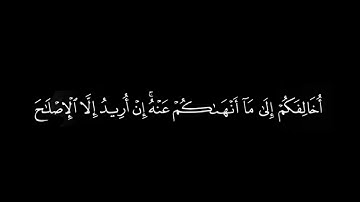 أُخَالِفَكُمۡ إِلَىٰ مَآ أَنۡهَىٰكُمۡ عَنۡهُۚ إِنۡ أُرِيدُ إِلَّا ٱلۡإِصۡلَٰحَ